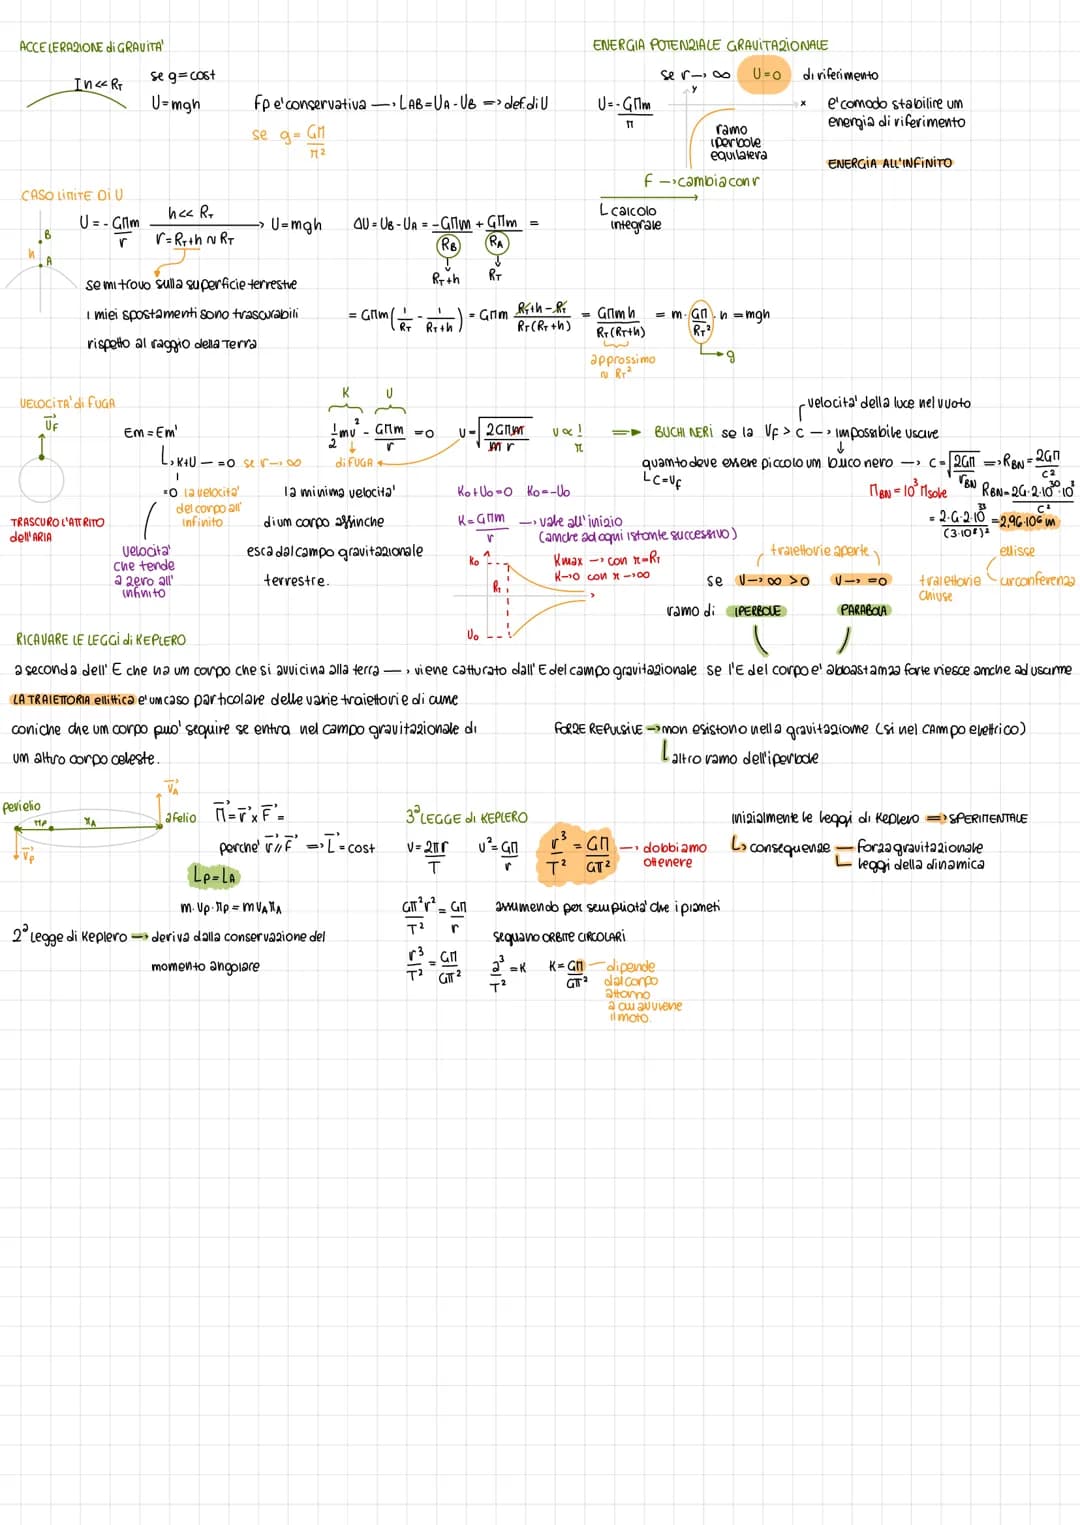 ACCELERAZIONE di GRAVITA'
In << RT
se g=cost
U=mgh
Fp e' conservativa → LAB=UA-UB => def.di U
se g= GM/r²
ENERGIA POTENZIALE GRAVITAZIONALE
se r→∞ U=0 di riferimento
U=-GMm/r
y
x
ramo
iperbole
equilatera
e' comodo stabilire un
energia di riferimento
ENERGIA ALL'INFINITO
F → cambia con r
calcolo
integrale
CASO LIMITE DI U
B
h
A
U=-GMm/r
h<< RT
r=RT+h ~ RT
→ U=mgh
ΔU=UB-UA = -GMm/RB + GMm/RA =
RT+h
RT
se mi trovo sulla superficie terrestre
i miei spostamenti sono trascurabili
rispetto al raggio della Terra
= GMm(1/RT - 1/RT+h) = GMm RT+h-RT/RT(RT+h) = GMmh/RT(RT+h) = m·GM/RT²·h =mgh
approssimo
~ RT²
g
VELOCITA' di FUGA
VF
Em=Em'
K+U → =0 se r→∞
=0 la velocita'
del corpo all'
infinito
TRASCURO L'ATTRITO
dell'ARIA
velocita'
che tende
a zero all'
infinito
K U
1/2mv² - GMm/r =0
di FUGA
v=√2GMm/mr
v∝1/r
la minima velocita'
di um corpo affinche
esca dal campo gravitazionale
terrestre.
K0+U0=0 K0=-U0
K=GMm/r → vale all'inizio
(anche ad ogni istante successivo)
K0
RT
U0
Kmax → con r=RT
K→0 con r→∞
velocita' della luce nel vuoto
=> BUCHI NERI se la VF > c → impossibile uscire
quanto deve essere piccolo um buco nero → c=√2GM/rBN => RBN=2GM/c²
c=vf
MBN=10³Msole RBN=2G·2·10³⁰·10³/c²
= 2·G·2·10³³/(3·10⁸)² =2,96·10⁶ m
traiettorie aperte
se v→∞ >0 v→ =0
ramo di IPERBOLE PARABOLA
traiettorie
chiuse
ellisse
circonferenza
RICAVARE LE LEGGI di KEPLERO
a seconda dell' E che ha um corpo che si avvicina alla terra → viene catturato dall'E del campo gravitazionale se l'E del corpo e' abbastanza forte riesce anche ad uscirne
LA TRAIETTORIA ellittica e' um caso particolare delle varie traiettorie di curve
coniche che um corpo puo' seguire se entra nel campo gravitazionale di
um altro corpo celeste.
FORZE REPULSIVE → non esistono nella gravitazione (si nel campo elettrico)
altro ramo dell'iperbole
perielio
rP
rA
afelio
VA
VP
M=r×F=
perche' r//F => L=cost
LP=LA
m·vp·rp=mvArA
2ª Legge di Keplero → deriva dalla conservazione del
momento angolare
3ª LEGGE di KEPLERO
v=2πr/T v²=GM/r r³/T² = GM/4π² → dobbiamo
ottenere
4π²r²/T² = GM/r
r³/T² = GM/4π²
assumendo per semplicita' che i pianeti
seguano ORBITE CIRCOLARI
a³/T² =K K=GM/4π²
dipende
dal corpo
attorno
a cui avviene
il moto.
inizialmente le leggi di Keplero => SPERIMENTALE
conseguenze forza gravitazionale
leggi della dinamica